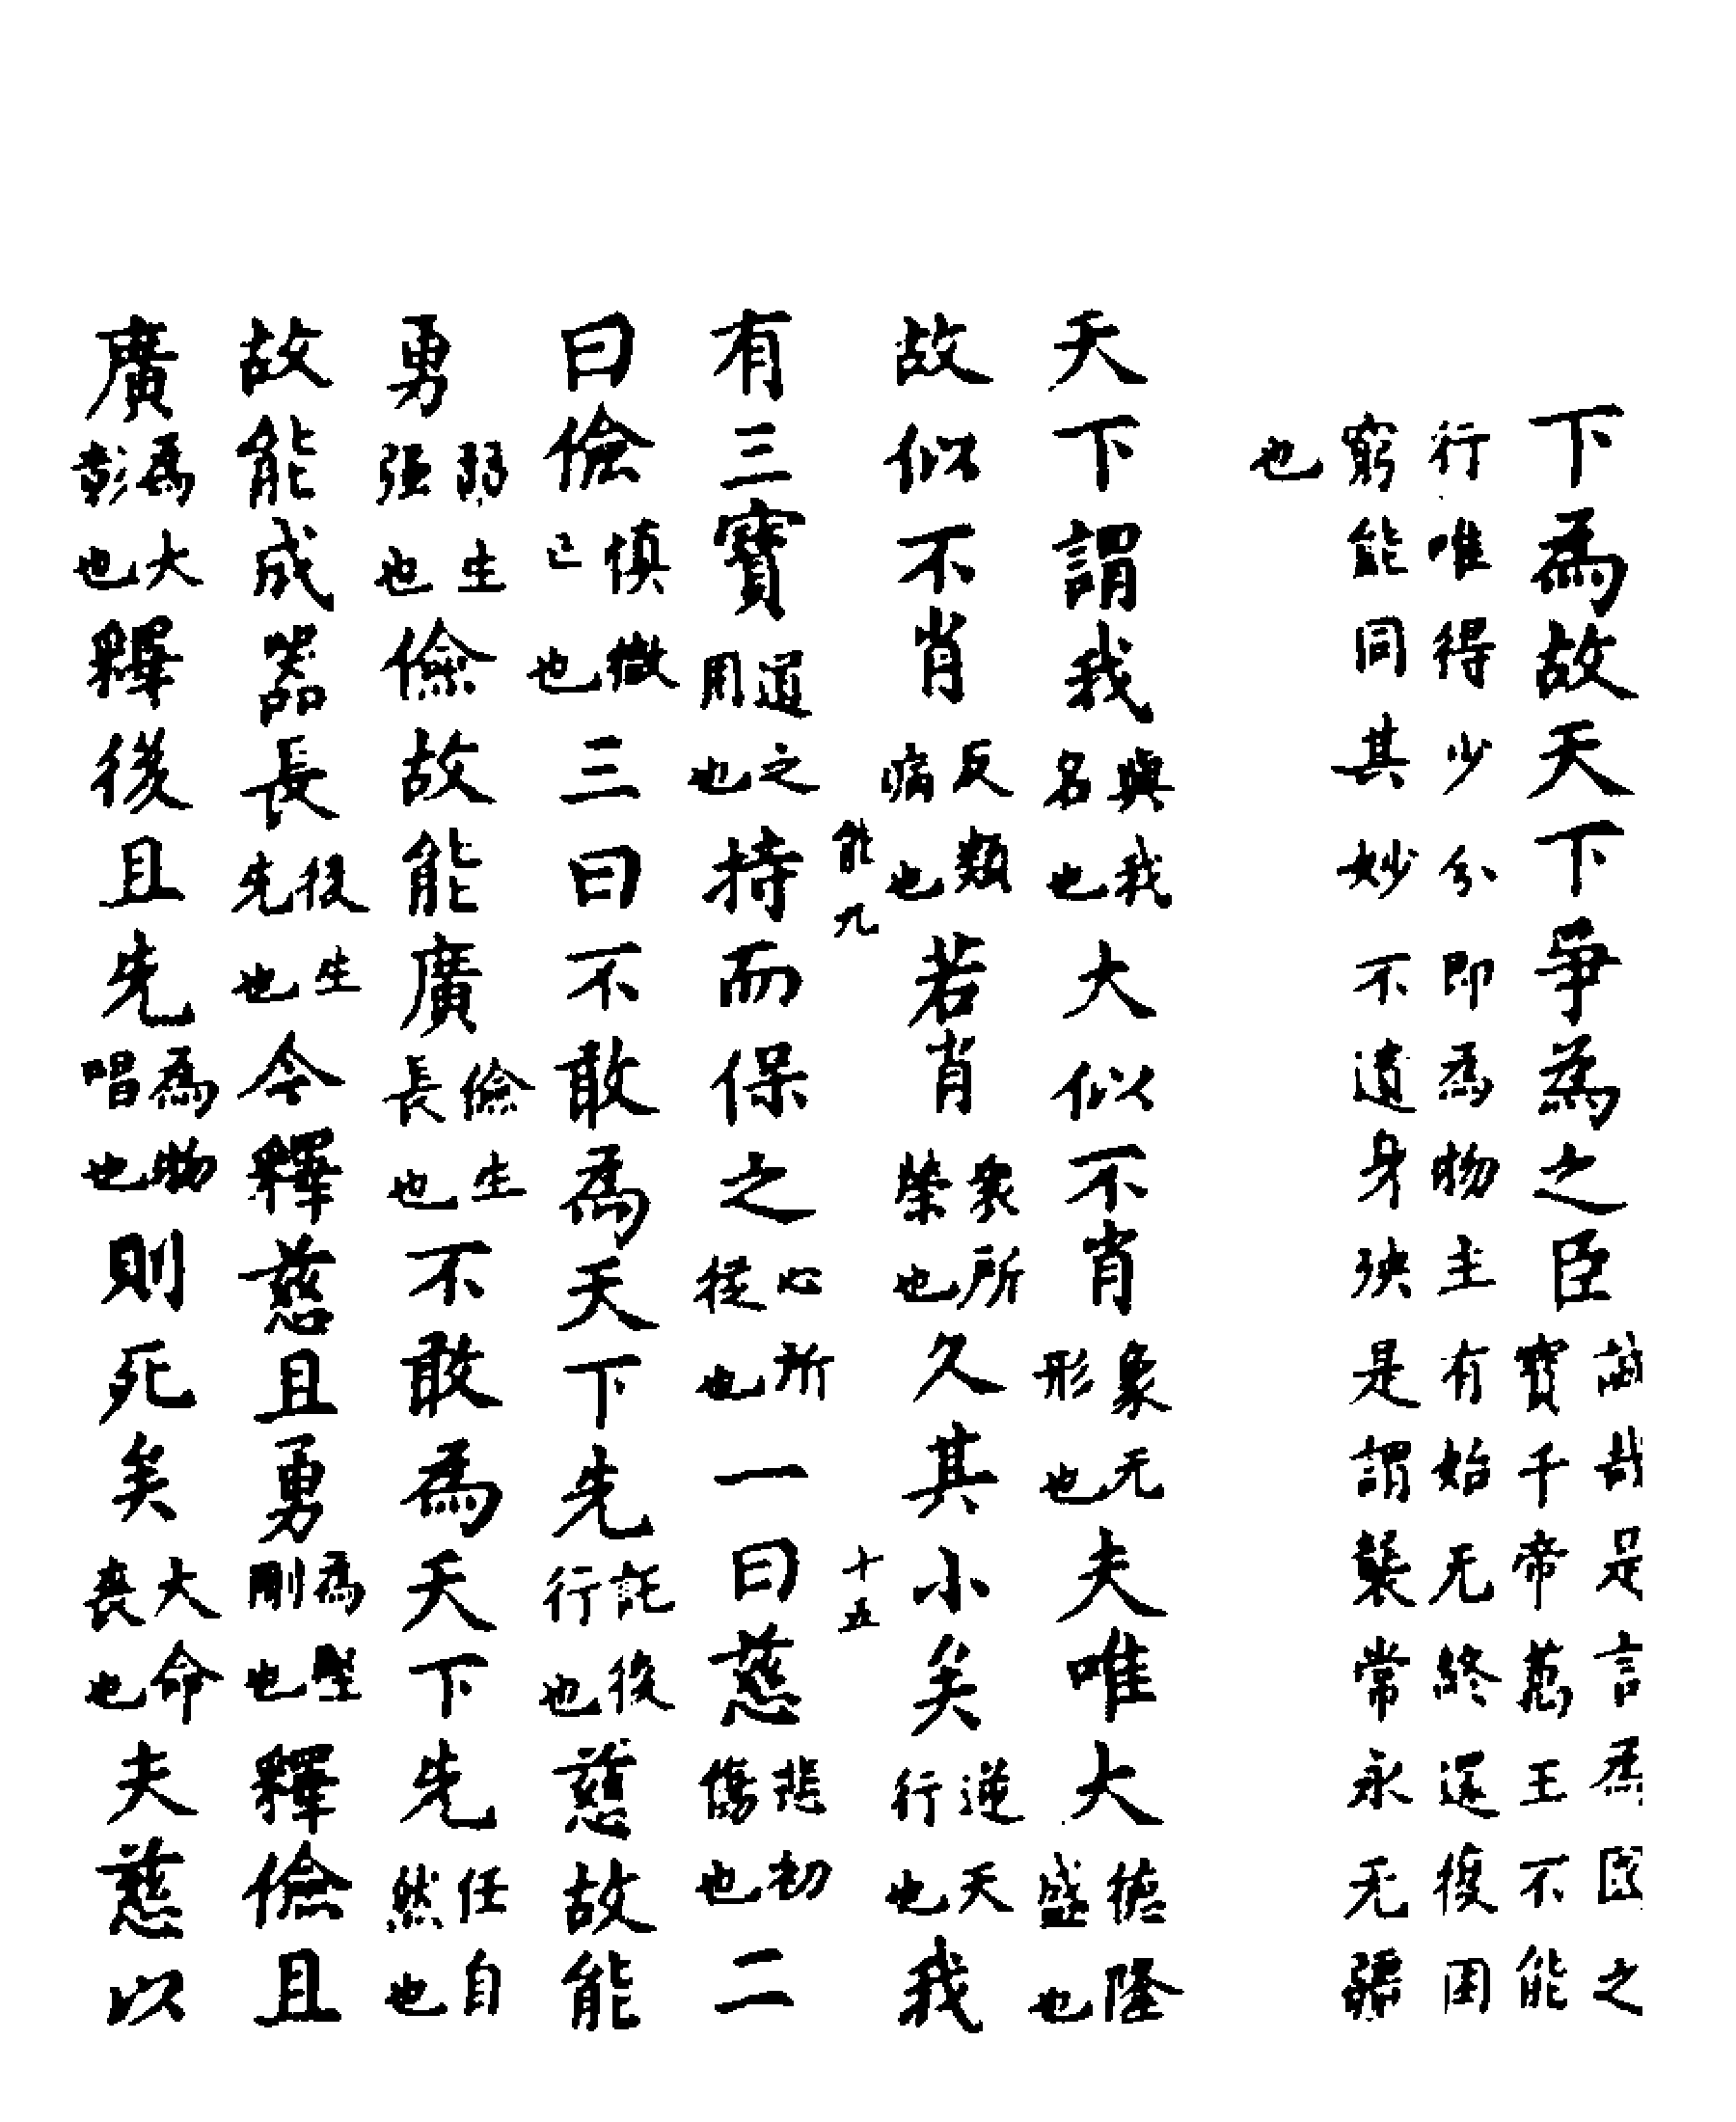 下為故天下爭為之臣誠哉是言為國之寶千帝萬王不能
行唯得少分即為物主有始无終還復困
窮能同其妙不遺身殃是謂襲常永无疆
也
天下謂我與我名也大似不肖象无形也夫唯大德隆盛也
故似不肖反類病也若肖衆所榮也久其小矣逆天行也我
能九
十五
有三寶道之用也持而保之心所從也一曰慈悲初傷也二
曰儉慎微已也三曰不敢為天下先託後行也慈故能
勇弱生强也儉故能廣儉生長也不敢為天下先任自然也
故能成器長後生先也今釋慈且勇為堅剛也釋儉且
廣為大彰也釋後且先為物唱也則死矣大命喪也夫慈以